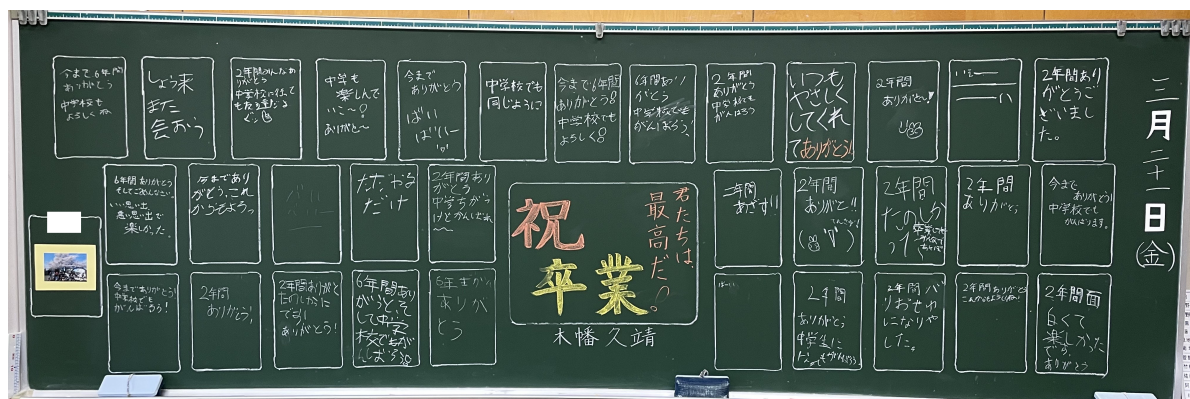 今まで6年間
ありがとう
中学校も
よろしくね
しょう来
また
会おう
2年間みんなあ
りがとう
中学校に行って
中学も
楽しんで
い〜〜!
ありがと〜
今まで
ありがとう
ばい
ばいー
中学校でも
同じように
今まで6年間
ありがとう!!
中学校でも
よろしく!!
6年間あり
がとう
中学校でも
がんばろう、
2年間
ありがとう
中学校でも
がんばろう
いつも
やさしく
してくれ
てありがとう!
2年間
ありがと!!
2年間あり
がとうご
ざいまし
た。
三月二十一日(金)
6年間ありがとう
そしてごめんなさい。
いい思い出
悪い思い出で
楽しかった。
今まであり
がとう、これ
からもよろしく
ただやる
だけ
2年間あり
がとう
中学ちがう
けどがんばれ
〜
君たちは、
最高だ。!
祝
卒業
木幡久靖
二年間
あざす!!
2年間
ありがと!!
2年間
たのしか
った
2年間
ありがとう
今まで
ありがとう
中学校でも
がんばります。
今までありがとう!
中学校でも
がんばろう!
2年間
ありがとう!
2年間ありがと
たのしかった
ありがとう!
6年間あり
がとう
中学
校でもが
んばろう
6年 ありが
とう
ばーい
2年間
ありがとう
中学生に
2年間バ
リおせわ
になりや
した。
2年間ありがとう
これからもよろしくね!
2年間面
白くて
楽しかった
です。
ありがとう